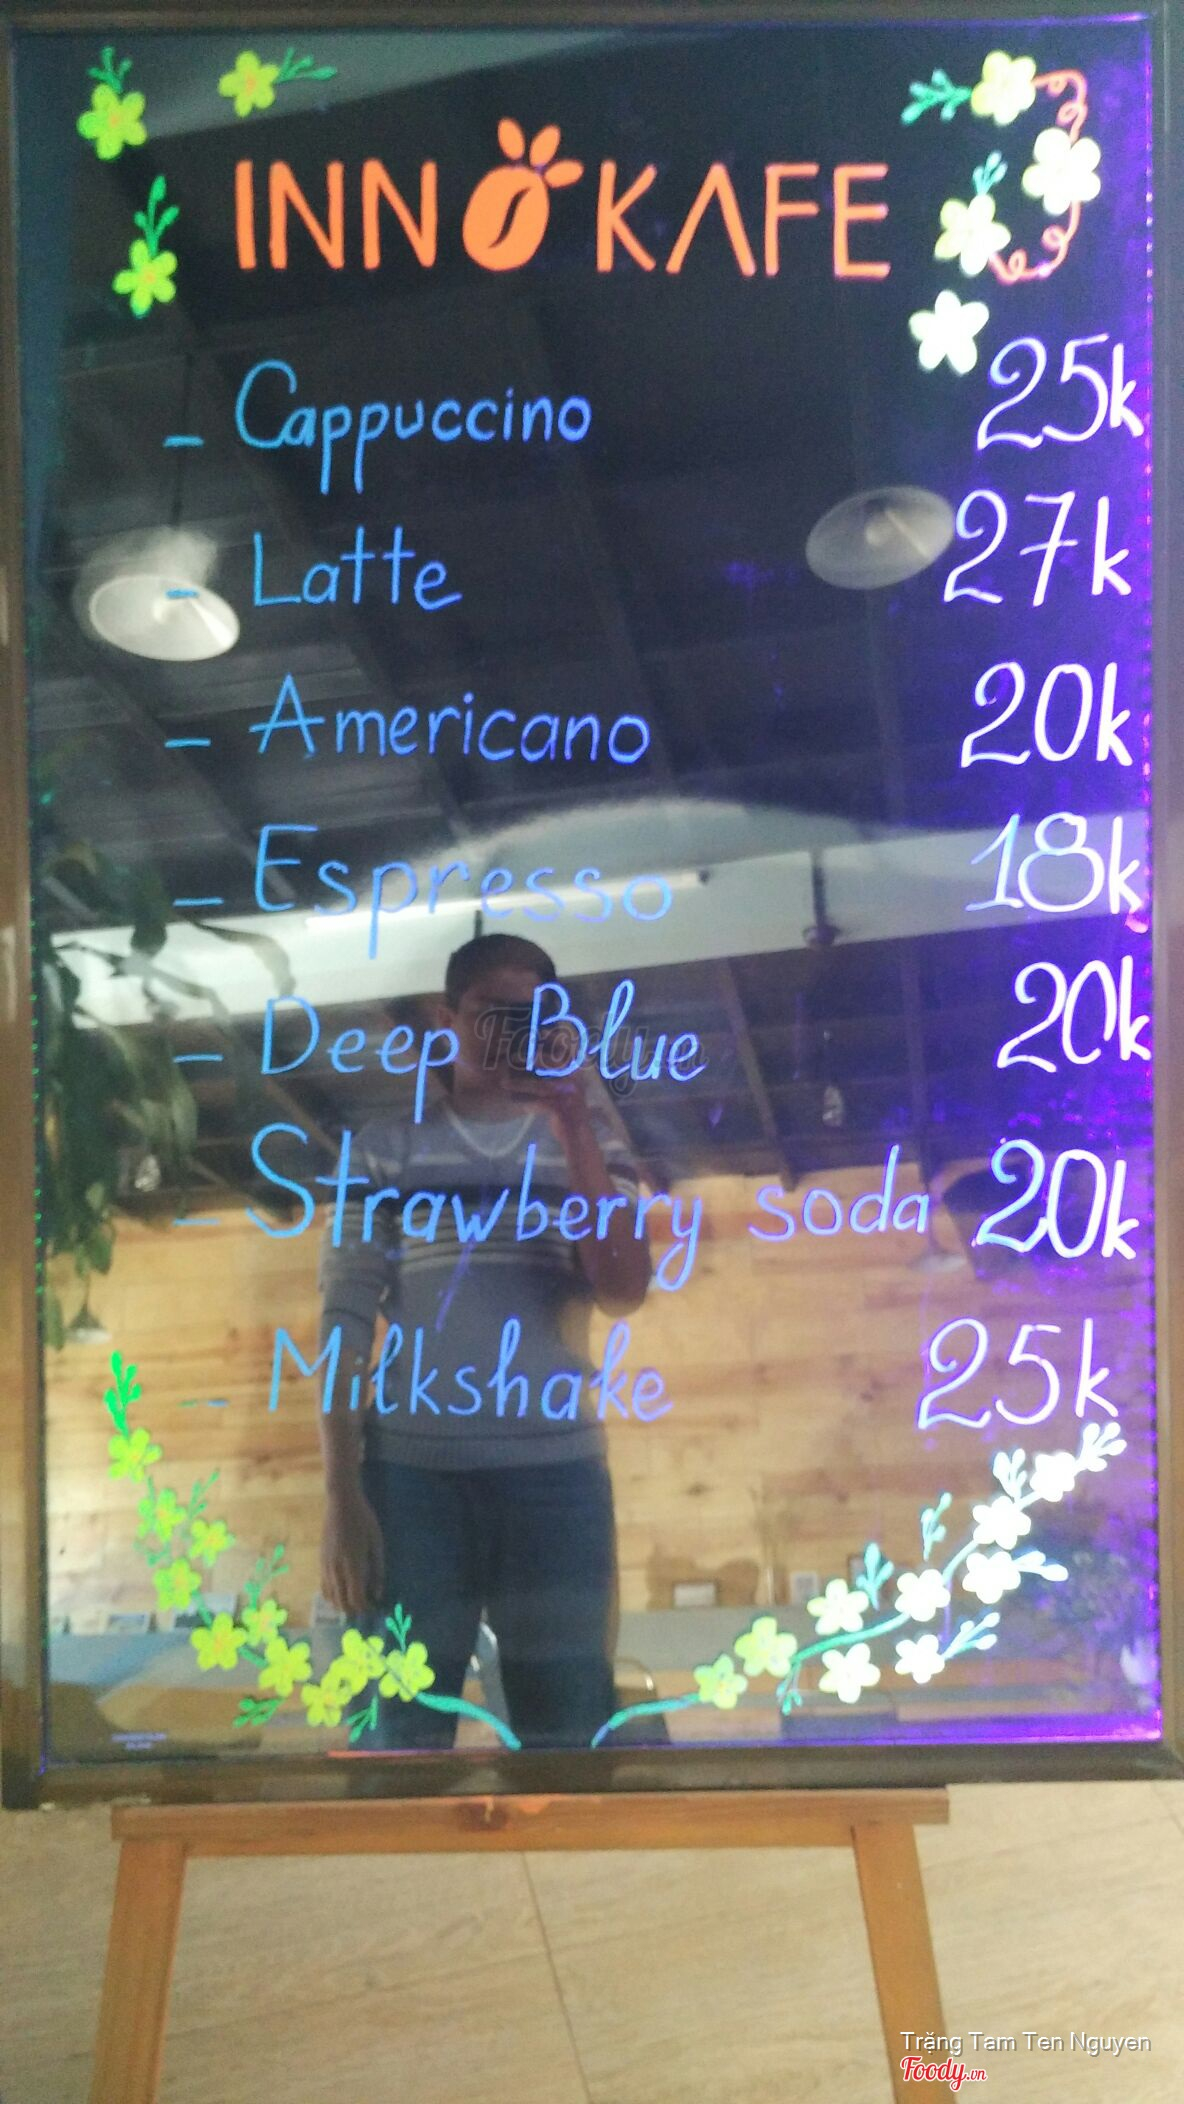 INNOKAFE
- Cappuccino 25k
- Latte 27k
- Americano 20k
- Espresso 18k
- Deep Blue 20k
- Strawberry soda 20k
- Milkshake 25k
Foody.vn
Trặng Tam Ten Nguyen
Foody.vn